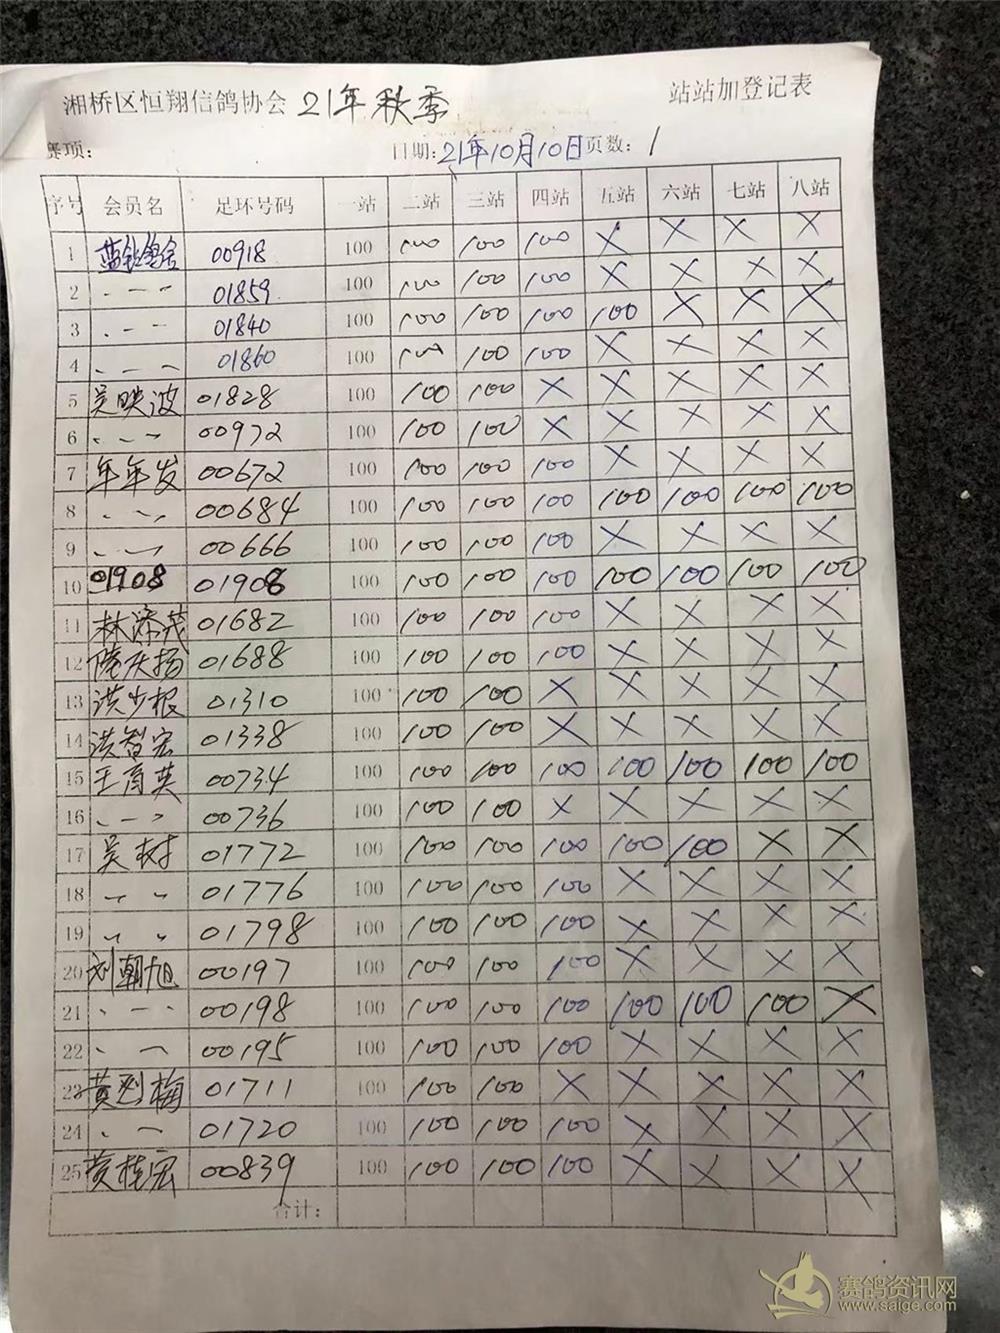 湘桥区恒翔信鸽协会 21年秋季 站站加登记表
赛项: 日期:21年10月10日 页数:1
序号 会员名 足环号码 一站 二站 三站 四站 五站 六站 七站 八站
1 鸽舍 00918 100 100 100 100 X X X X
2 、一一 01859 100 100 100 100 X X X X
3 、一一 01840 100 100 100 100 100 X X X
4 、、一 01860 100 100 100 100 X X X X
5 吴映波 01828 100 100 100 X X X X X
6 、一一 00972 100 100 100 X X X X X
7 年年发 00672 100 100 100 100 X X X X
8 、、、 00684 100 100 100 100 100 100 100 100
9 、一一 00666 100 100 100 100 X X X X
10 01908 01908 100 100 100 100 100 100 100 100
11 林添茂 01682 100 100 100 100 X X X X
12 庆扬 01688 100 100 100 100 X X X X
13 洪少根 01310 100 100 100 X X X X X
14 洪智宏 01338 100 100 100 X X X X X
15 王育英 00734 100 100 100 100 100 100 100 100
16 、一、 00736 100 100 100 X X X X X
17 吴树 01772 100 100 100 100 100 100 X X
18 、、 01776 100 100 100 100 X X X X
19 、、 01798 100 100 100 100 X X X X
20 刘朝旭 00197 100 100 100 100 X X X X
21 、一一 00198 100 100 100 100 100 100 100 X
22 、一 00195 100 100 100 100 X X X X
23 黄烈梅 01711 100 100 100 X X X X X
24 、一 01720 100 100 100 100 X X X X
25 黄桂宏 00839 100 100 100 100 X X X X
合计:
赛鸽资讯网
www.saige.com